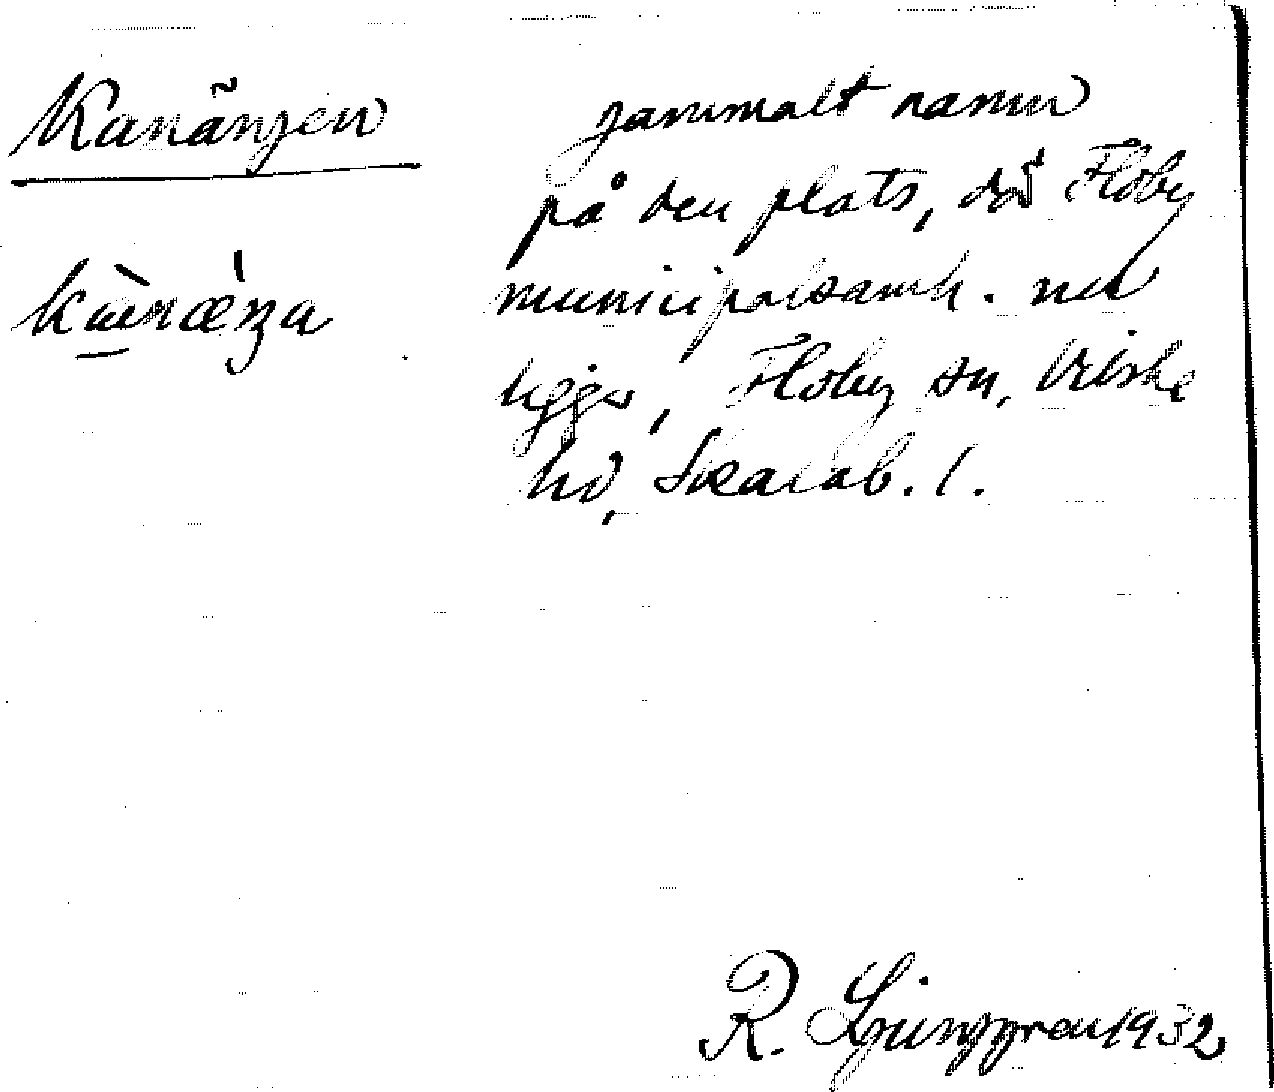 Kanängen
kànǽŋa
gammalt namn
på den plats, där Floby
municipalsamh. nu
ligger, Floby sn, Vilske
hd, Skarab. l.
R. Ljunggren 1932